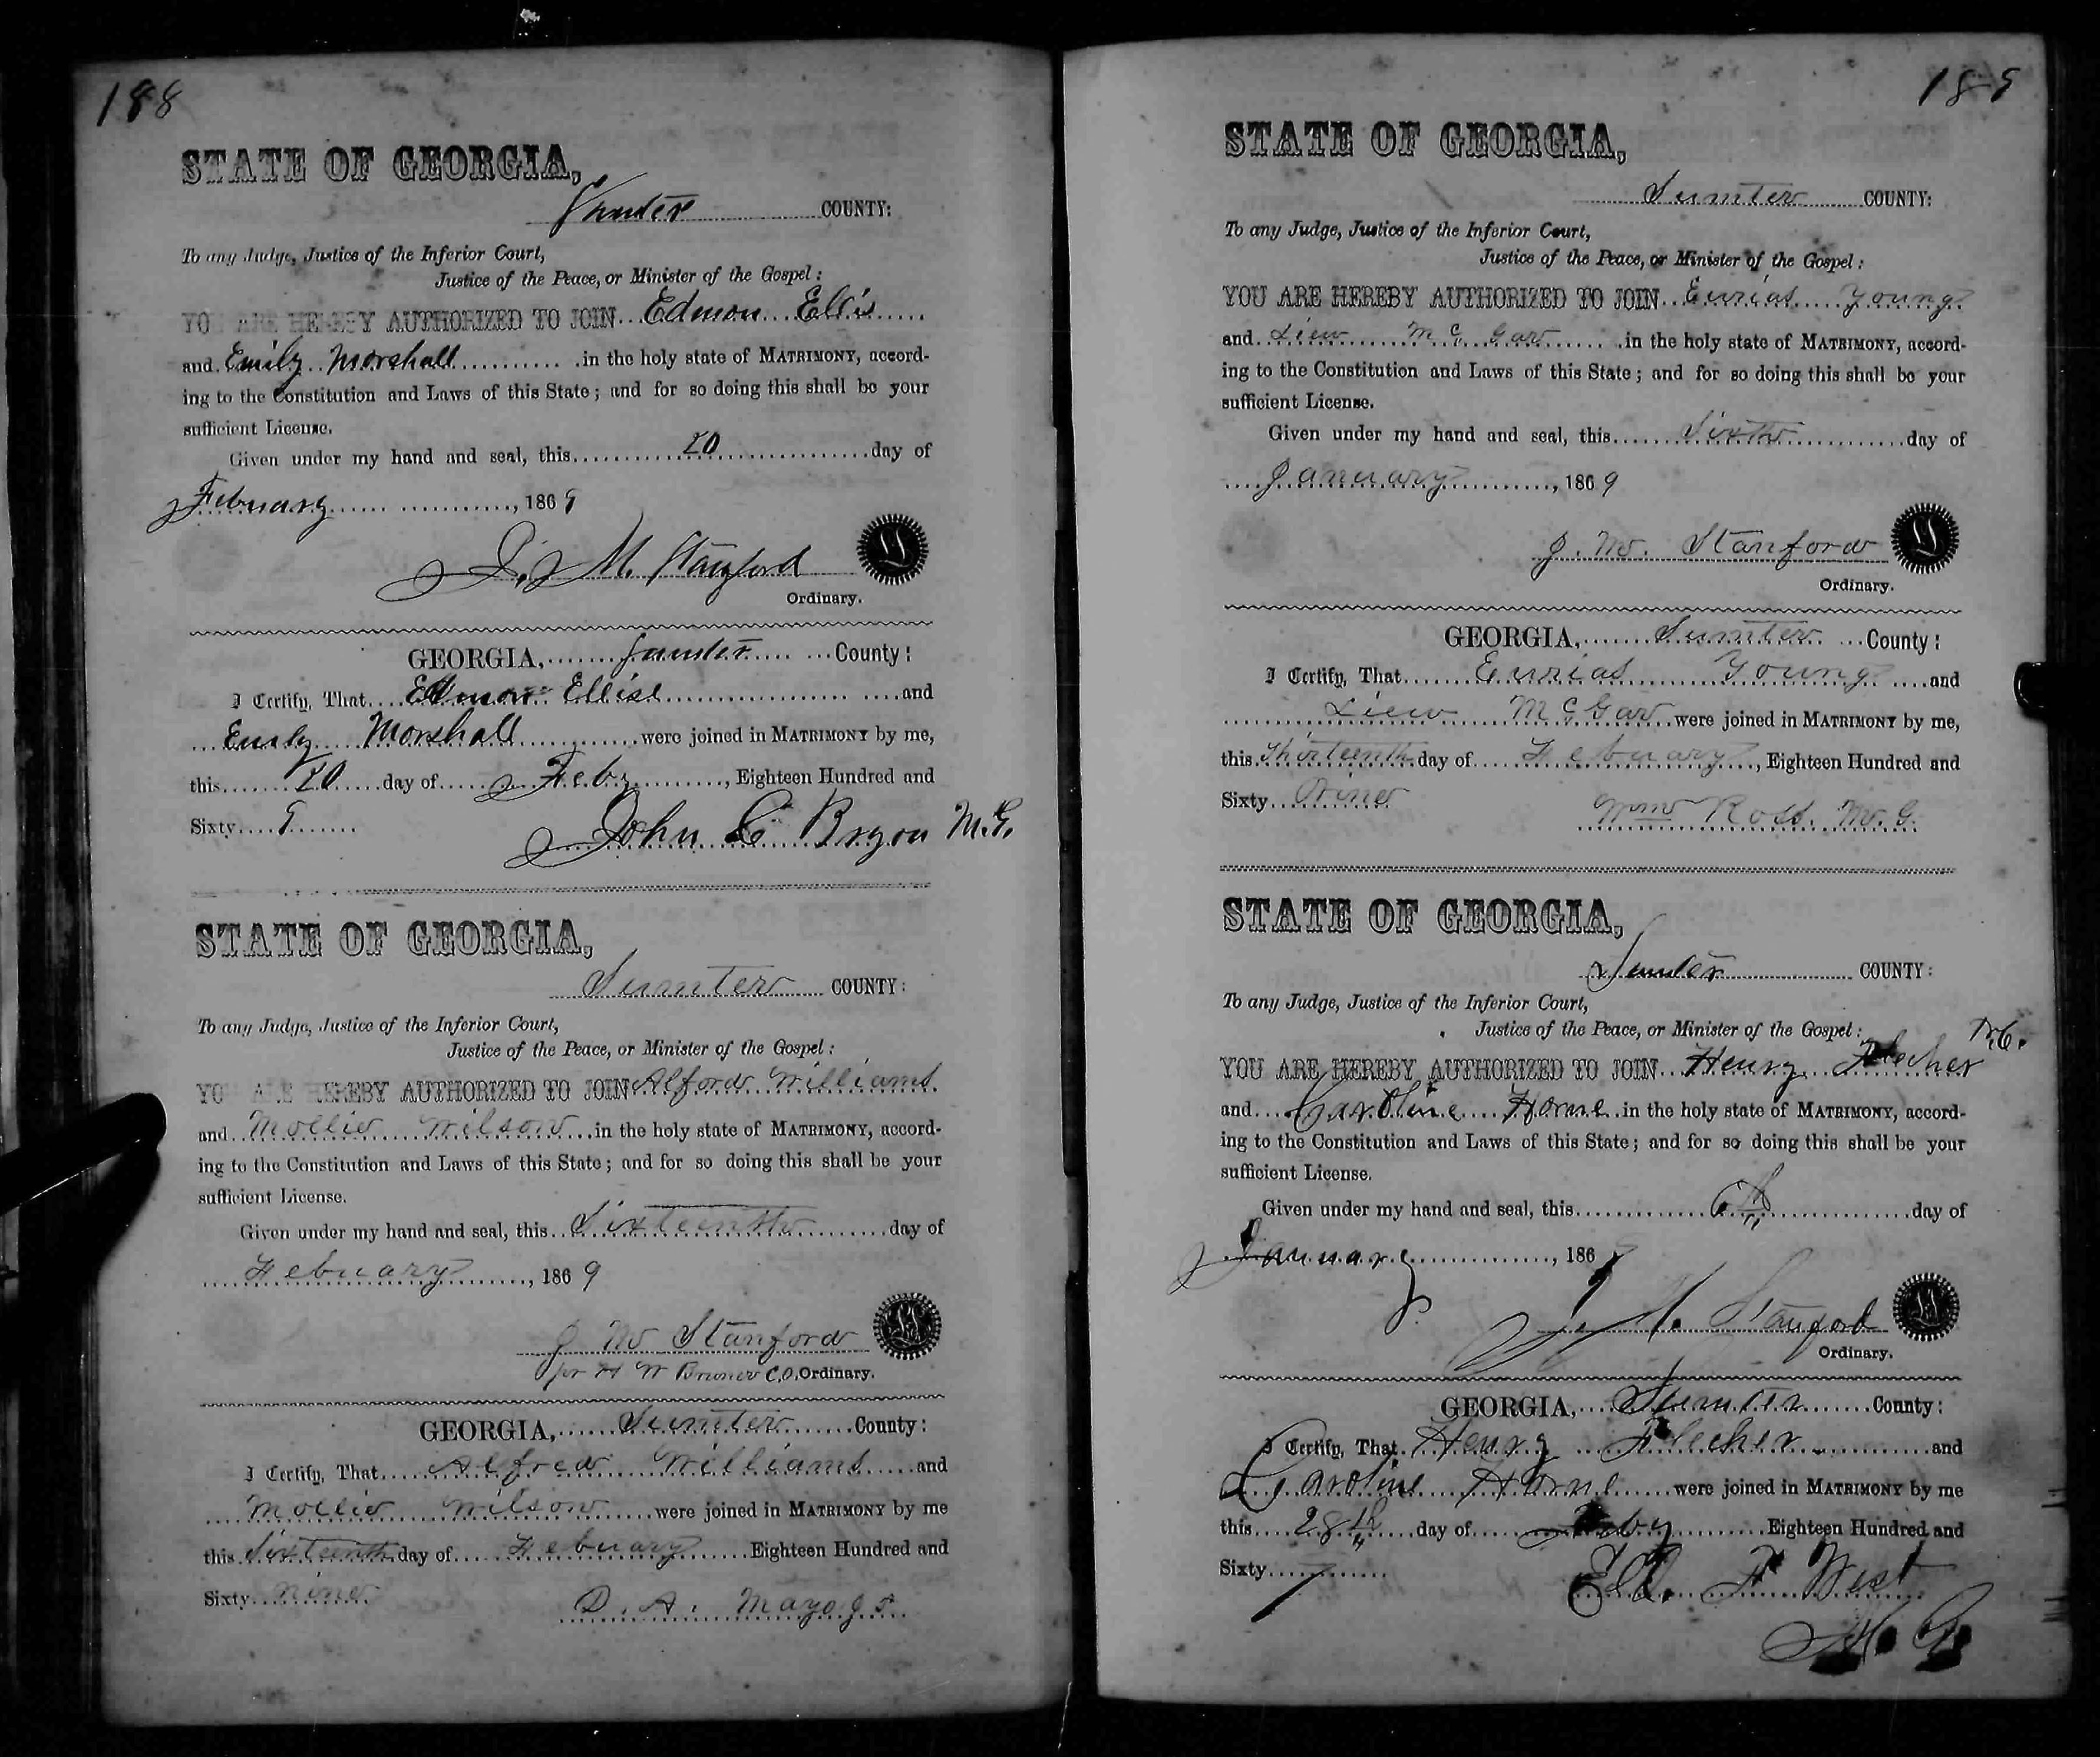 188
STATE OF GEORGIA,
Sumter COUNTY:
To any Judge, Justice of the Inferior Court,
Justice of the Peace, or Minister of the Gospel:
YOU ARE HEREBY AUTHORIZED TO JOIN Edmon Ellis
and Emily Morshall in the holy state of MATRIMONY, accord-
ing to the Constitution and Laws of this State; and for so doing this shall be your
sufficient License.
Given under my hand and seal, this 20 day of
February, 1869
J. M. Stanford
Ordinary.
GEORGIA, Sumter County:
I Certify, That Edmon Ellise and
Emily Morshall were joined in MATRIMONY by me,
this 20 day of Feby, Eighteen Hundred and
Sixty 9
John C Bryon M.G.
STATE OF GEORGIA,
Sumter COUNTY:
To any Judge, Justice of the Inferior Court,
Justice of the Peace, or Minister of the Gospel:
YOU ARE HEREBY AUTHORIZED TO JOIN Alford Williams
and Mollie Wilson in the holy state of MATRIMONY, accord-
ing to the Constitution and Laws of this State; and for so doing this shall be your
sufficient License.
Given under my hand and seal, this Sixteenth day of
Febuary, 1869
J M Stanford
per H W Bruner C.O. Ordinary.
GEORGIA, Sumter County:
I Certify, That Alfred Williams and
Mollie Wilson were joined in MATRIMONY by me
this Sixteenth day of Febuary Eighteen Hundred and
Sixty nine
D. A. Mayo J P
189
STATE OF GEORGIA,
Sumter COUNTY:
To any Judge, Justice of the Inferior Court,
Justice of the Peace, or Minister of the Gospel:
YOU ARE HEREBY AUTHORIZED TO JOIN Eurias Young
and Liew McGar in the holy state of MATRIMONY, accord-
ing to the Constitution and Laws of this State; and for so doing this shall be your
sufficient License.
Given under my hand and seal, this Sixth day of
January, 1869
J. M. Stanford
Ordinary.
GEORGIA, Sumter County:
I Certify, That Eurias Young and
Liew McGar were joined in MATRIMONY by me,
this Thirteenth day of Febuary, Eighteen Hundred and
Sixty Nine
Wm Ross. M.G.
STATE OF GEORGIA,
Sumter COUNTY:
To any Judge, Justice of the Inferior Court,
Justice of the Peace, or Minister of the Gospel:
YOU ARE HEREBY AUTHORIZED TO JOIN Henry Flecher
and Caroline Horne in the holy state of MATRIMONY, accord-
ing to the Constitution and Laws of this State; and for so doing this shall be your
sufficient License.
Given under my hand and seal, this 6th day of
January, 1869
J. M. Stanford
Ordinary.
GEORGIA, Sumter County:
I Certify, That Henry Flecher and
Caroline Horne were joined in MATRIMONY by me
this 28th day of Feby Eighteen Hundred and
Sixty
Eld. F West
M. G.